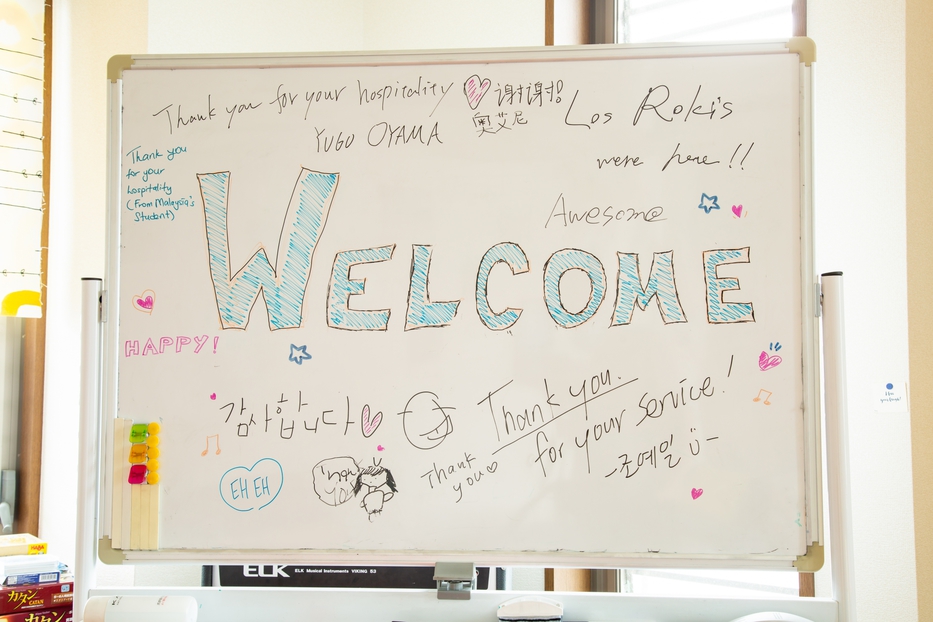 Thank you for your hospitality
谢谢!
奥艾尼
YUGO OYAMA
Los Rokis
were here !!
Thank you
for your
hospitality
(From Malaysia's
Student)
Awesome
WELCOME
HAPPY!
감사합니다
Thank you.
for your service!
-조예일
Thank
you
EH EH
ELK Musical Instruments VIKING 83
カタン
CATAN
カタン